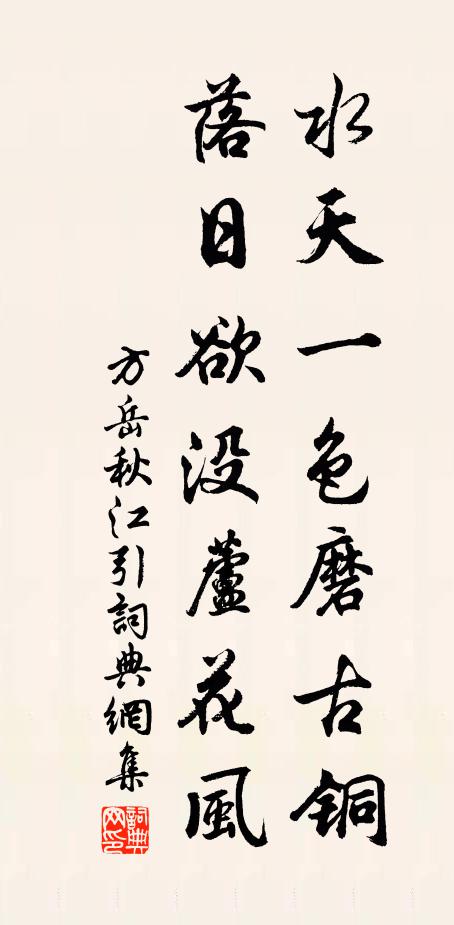 水天一色磨古銅
落日欲没蘆花風
方岳秋江引詞典網集
詞典
网印